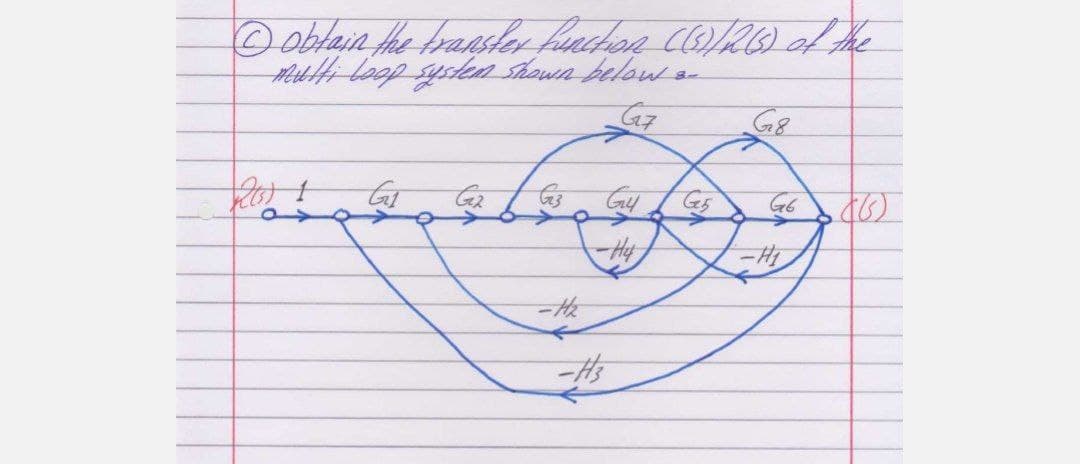 (C) obtain the transfer function C(s)/R(s) of the
multi loop system shown below :-
G7
G8
R(s) 1 G1 G2 G3 G4 G5 G6 C(s)
-H4 -H1
-H2
-H3